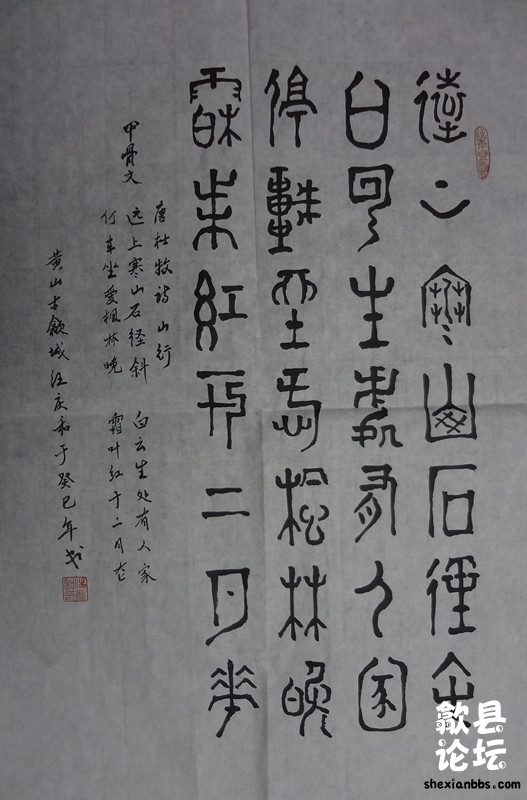 遠上寒山石徑斜
白雲生處有人家
停車坐愛楓林晚
霜葉紅於二月花
甲骨文
唐杜牧诗 山行
远上寒山石径斜 白云生处有人家
仃车坐爱枫林晚 霜叶红于二月花
黄山古歙城汪庆和于癸巳年书
歙县
论坛
shexianbbs.com